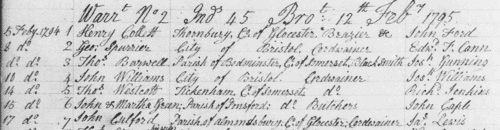 Warrt No 2 Ind 45 Bro:t 12th Feby 1795
5 Feby 1794 1 Henry Collett Thornbury, Co of Glocester Brazier & John Ford
8 do 2 Geo: Spurrier City of Bristol Cordwainer Edwd T. Cann
do do 3 Thos Barwell Parish of Bedminster, C. of Somerset, Black Smith Jos: Gunning
10 do 4 John Williams City of Bristol Cordwainer Jos: Williams
14 do 5 Thos Westcott Tickenham, C. of Somerset do Richd Jenkins
15 do 6 John & Martha Green; Parish of Ironsford; do Butchers John Caple
17 do 7 John Parish of Almondsbury; C. of Glocester; Cordwainer Jas: Lewis